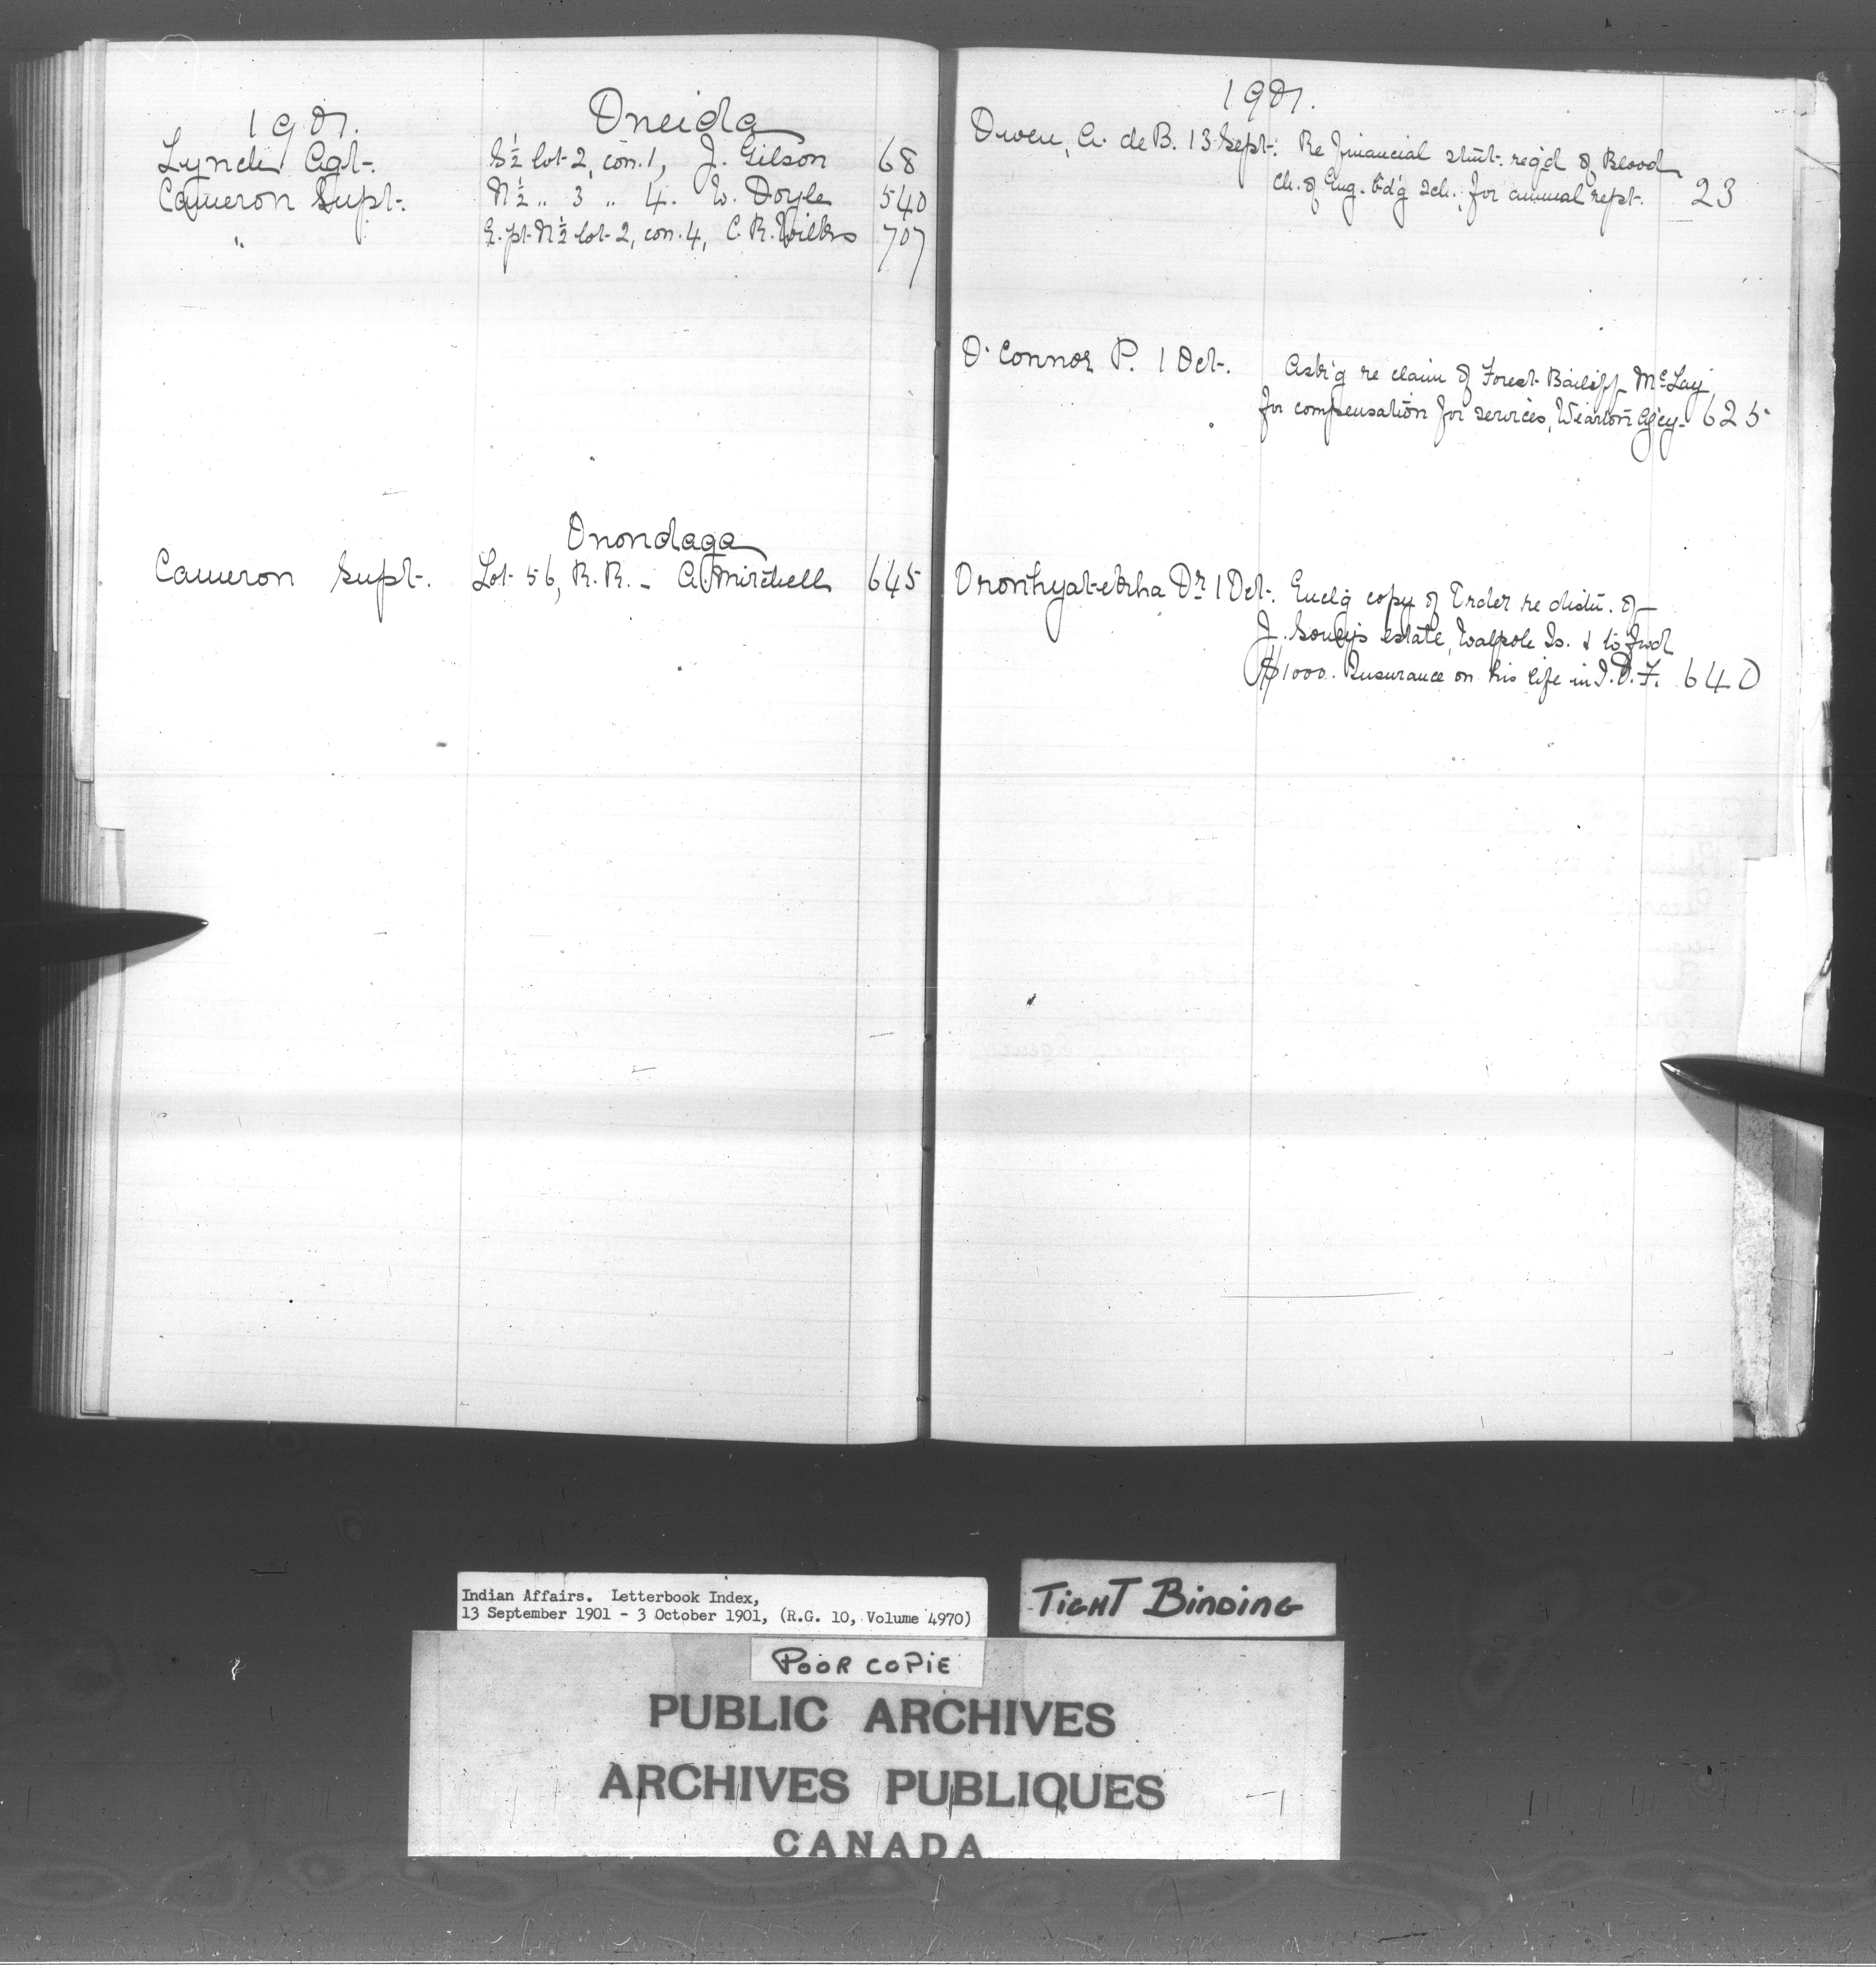 1901.
Oneida
Lynch Agt. S ½ lot 2, con. 1, J. Gilson 68
Cameron Supt. N ½ " 3 " 4. W. Doyle 540
" E. pt. N ½ lot 2, con. 4, C. R. Wilkes 707
Onondaga
Cameron Supt. Lot 56, R. R. - A. Mitchell 645
1901.
Owen, A. de B. 13 Sept. Re Financial stmt. req'd of Blood
Ch. of Eng. bd'g sch., for annual rept. 23
O'Connor P. 1 Oct. Ask'g re claim of Forest Bailiff McLay
for compensation for services, Wiarton Agcy. 625
Oronhyatekha Dr. 1 Oct. Encl'g copy of Order re distn. of
J. Soney's estate, Walpole Is. & to fwd
$1000. Insurance on his life in I.O.F. 640
Indian Affairs. Letterbook Index,
13 September 1901 - 3 October 1901, (R.G. 10, Volume 4970)
TIGHT BINDING
POOR COPIE
PUBLIC ARCHIVES
ARCHIVES PUBLIQUES
CANADA